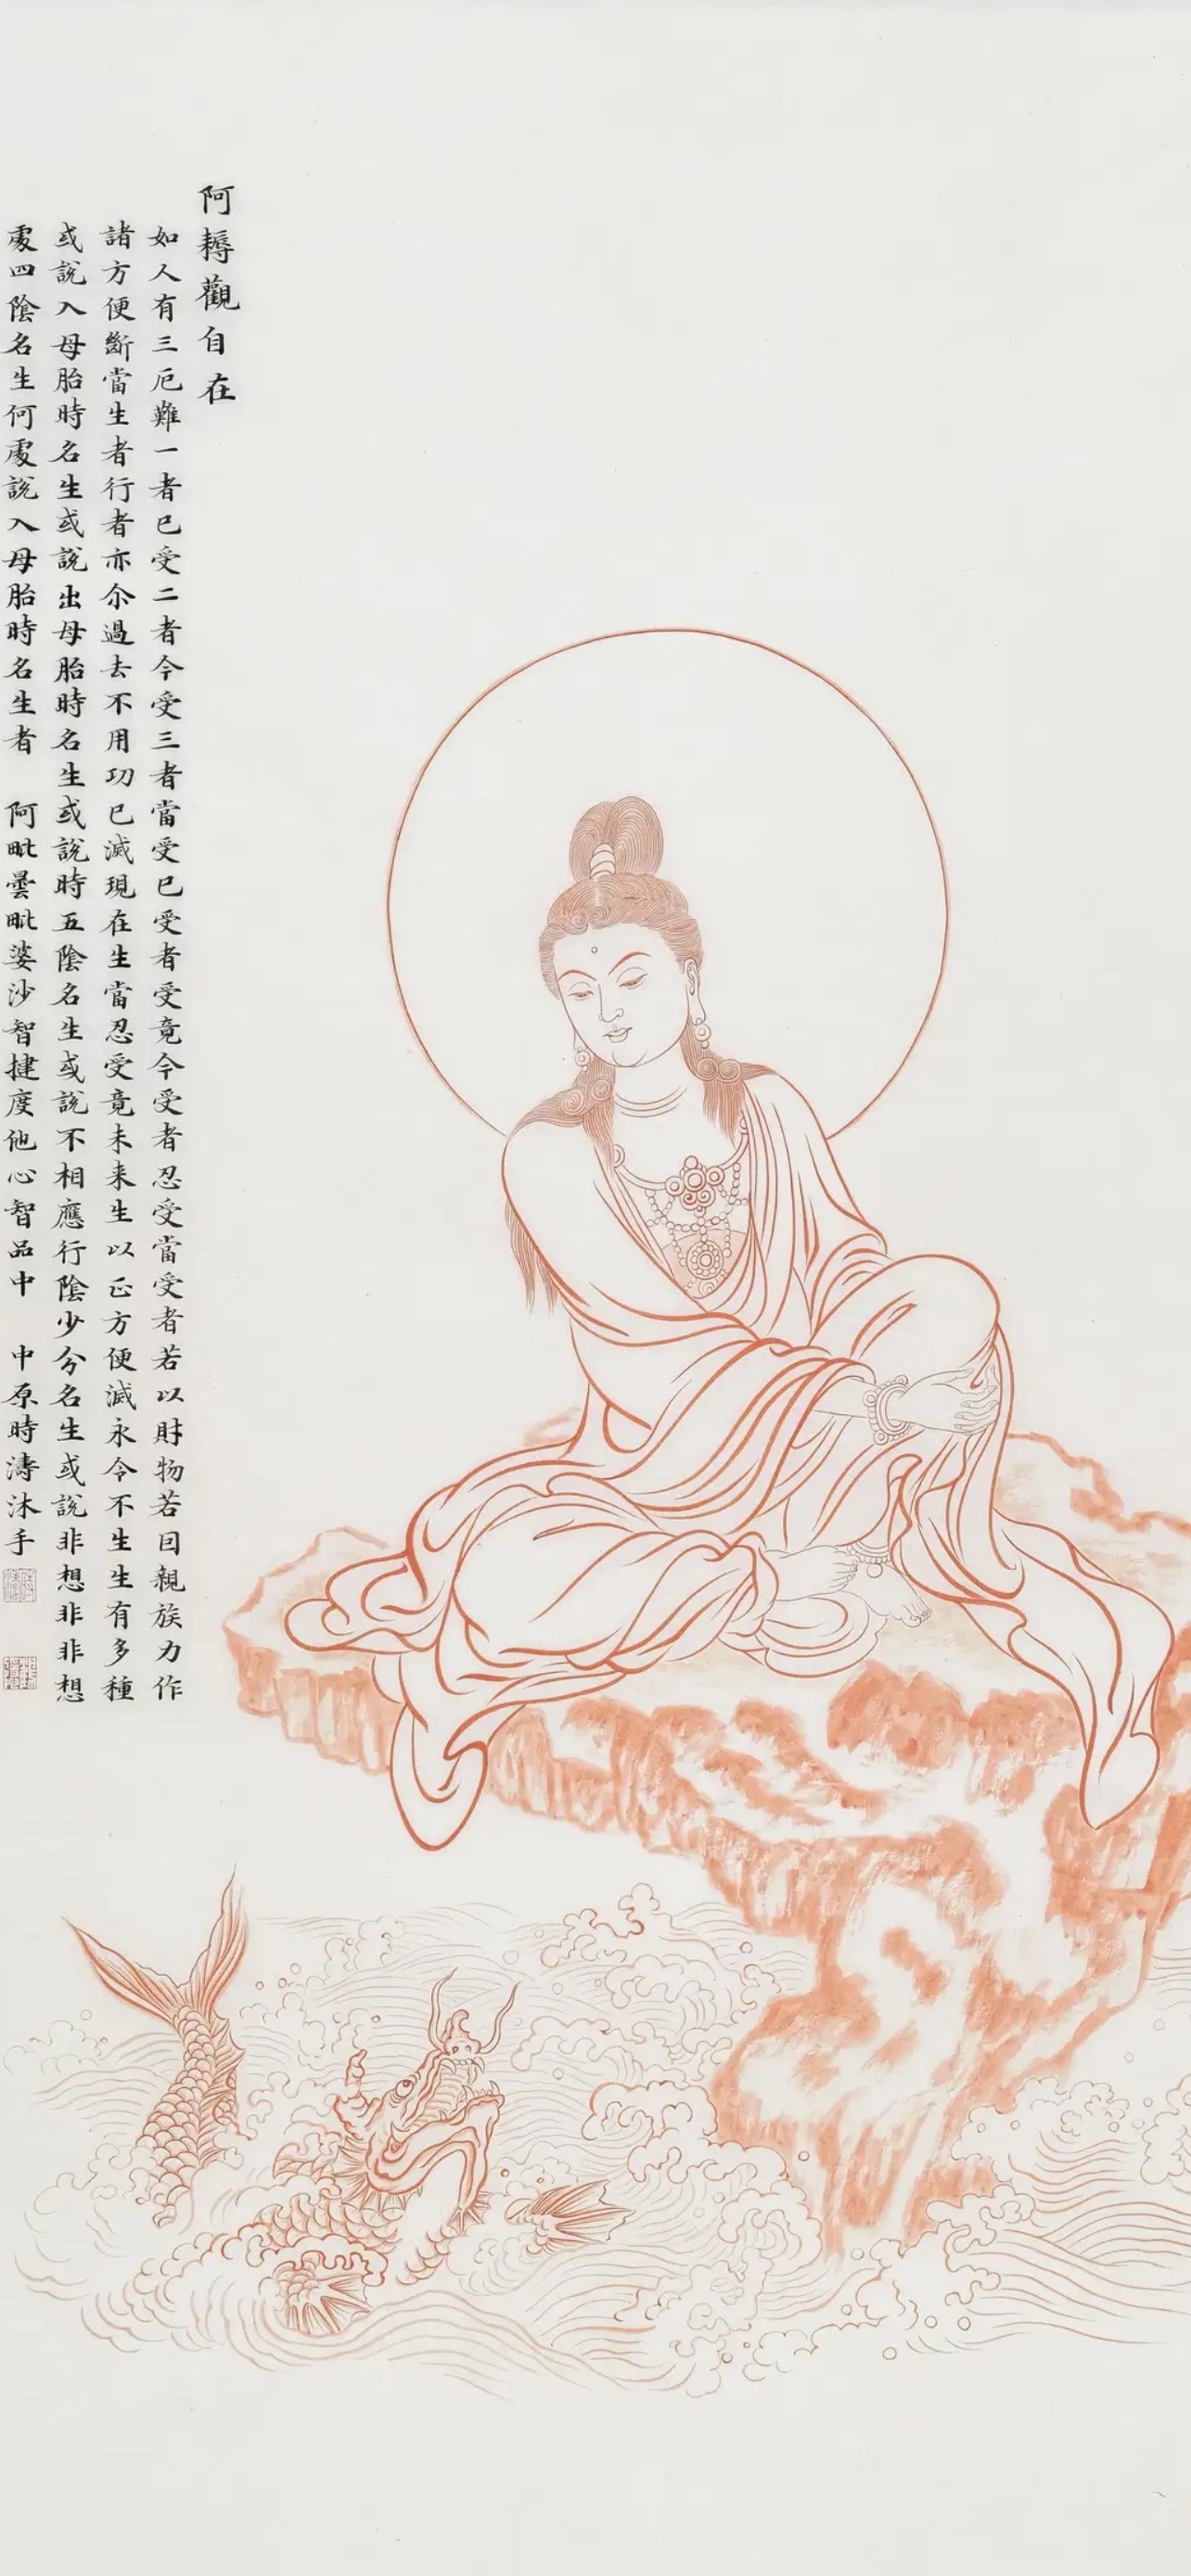 阿耨觀自在
如人有三厄難一者已受二者今受三者當受已受者受竟今受者忍受當受者若以財物若因親族力作
諸方便斷當生者行者亦尒過去不用功已滅現在生當忍受竟未来生以正方便滅永令不生生有多種
或說入母胎時名生或說出母胎時名生或說時五陰名生或說不相應行陰少分名生或說非想非非想
處四陰名生何處說入母胎時名生者 阿毗曇毗婆沙智揵度他心智品中 中原時濤沐手